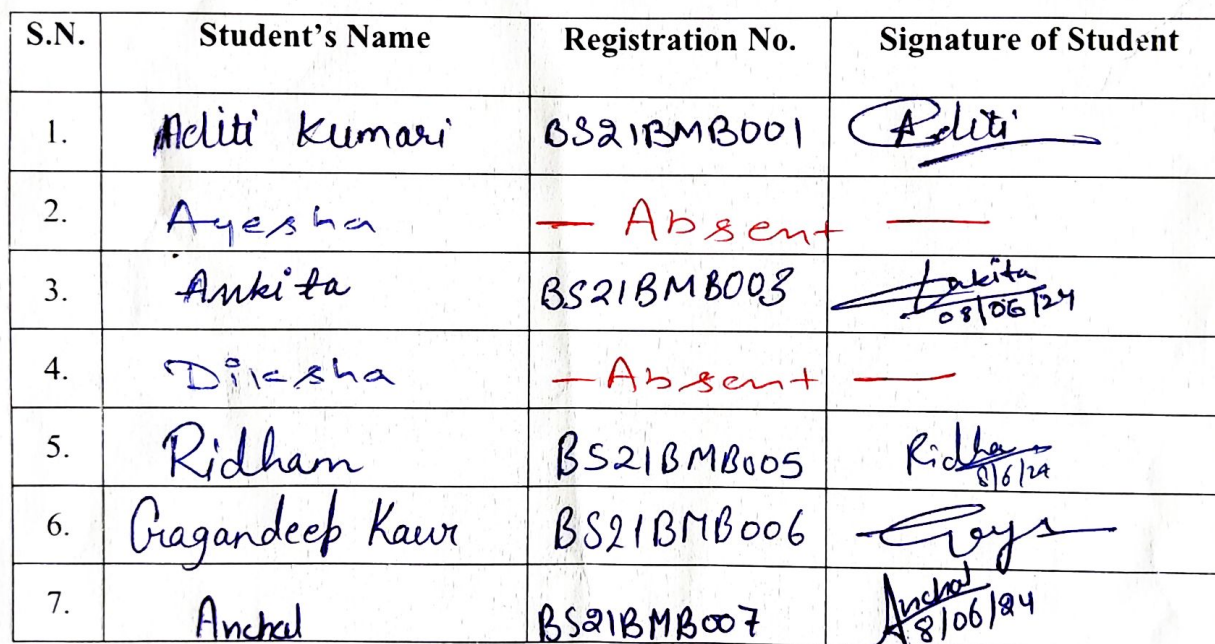 S.N. Student's Name Registration No. Signature of Student
1. Aditi Kumari BS21BMB001 Aditi
2. Ayesha — Absent —
3. Ankita BS21BMB003 Ankita
08/06/24
4. Diksha — Absent —
5. Ridham BS21BMB005 Ridham
8/6/24
6. Gagandeep Kaur BS21BMB006
7. Anchal BS21BMB007 Anchal
8/06/24